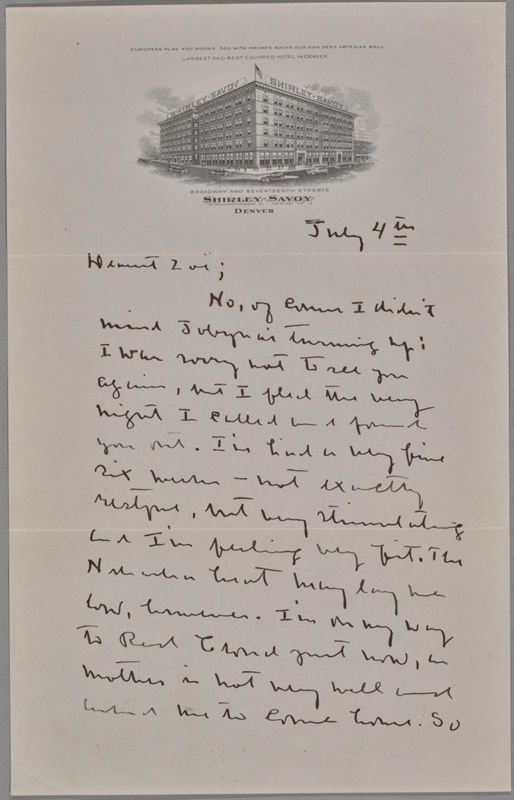 EUROPEAN PLAN 400 ROOMS 300 WITH PRIVATE BATHS OUR OWN DEEP ARTESIAN WELL
LARGEST AND BEST EQUIPPED HOTEL IN DENVER
SHIRLEY-SAVOY SHIRLEY-SAVOY
BROADWAY AND SEVENTEENTH STREETS
SHIRLEY-SAVOY
DENVER
July 4th
Dearest Zoë;
No, of course I didn't
mind Jobyna's turning up;
I was sorry not to see you
again, but I fled the very
night I called and found
you out. I've had a very fine
six weeks – not exactly
restful, but very stimulating
and I'm feeling very fit. The
Nebraska heat may lay me
low, however. I'm on my way
to Red Cloud just now, as
mother is not very well and
asked me to come home. So